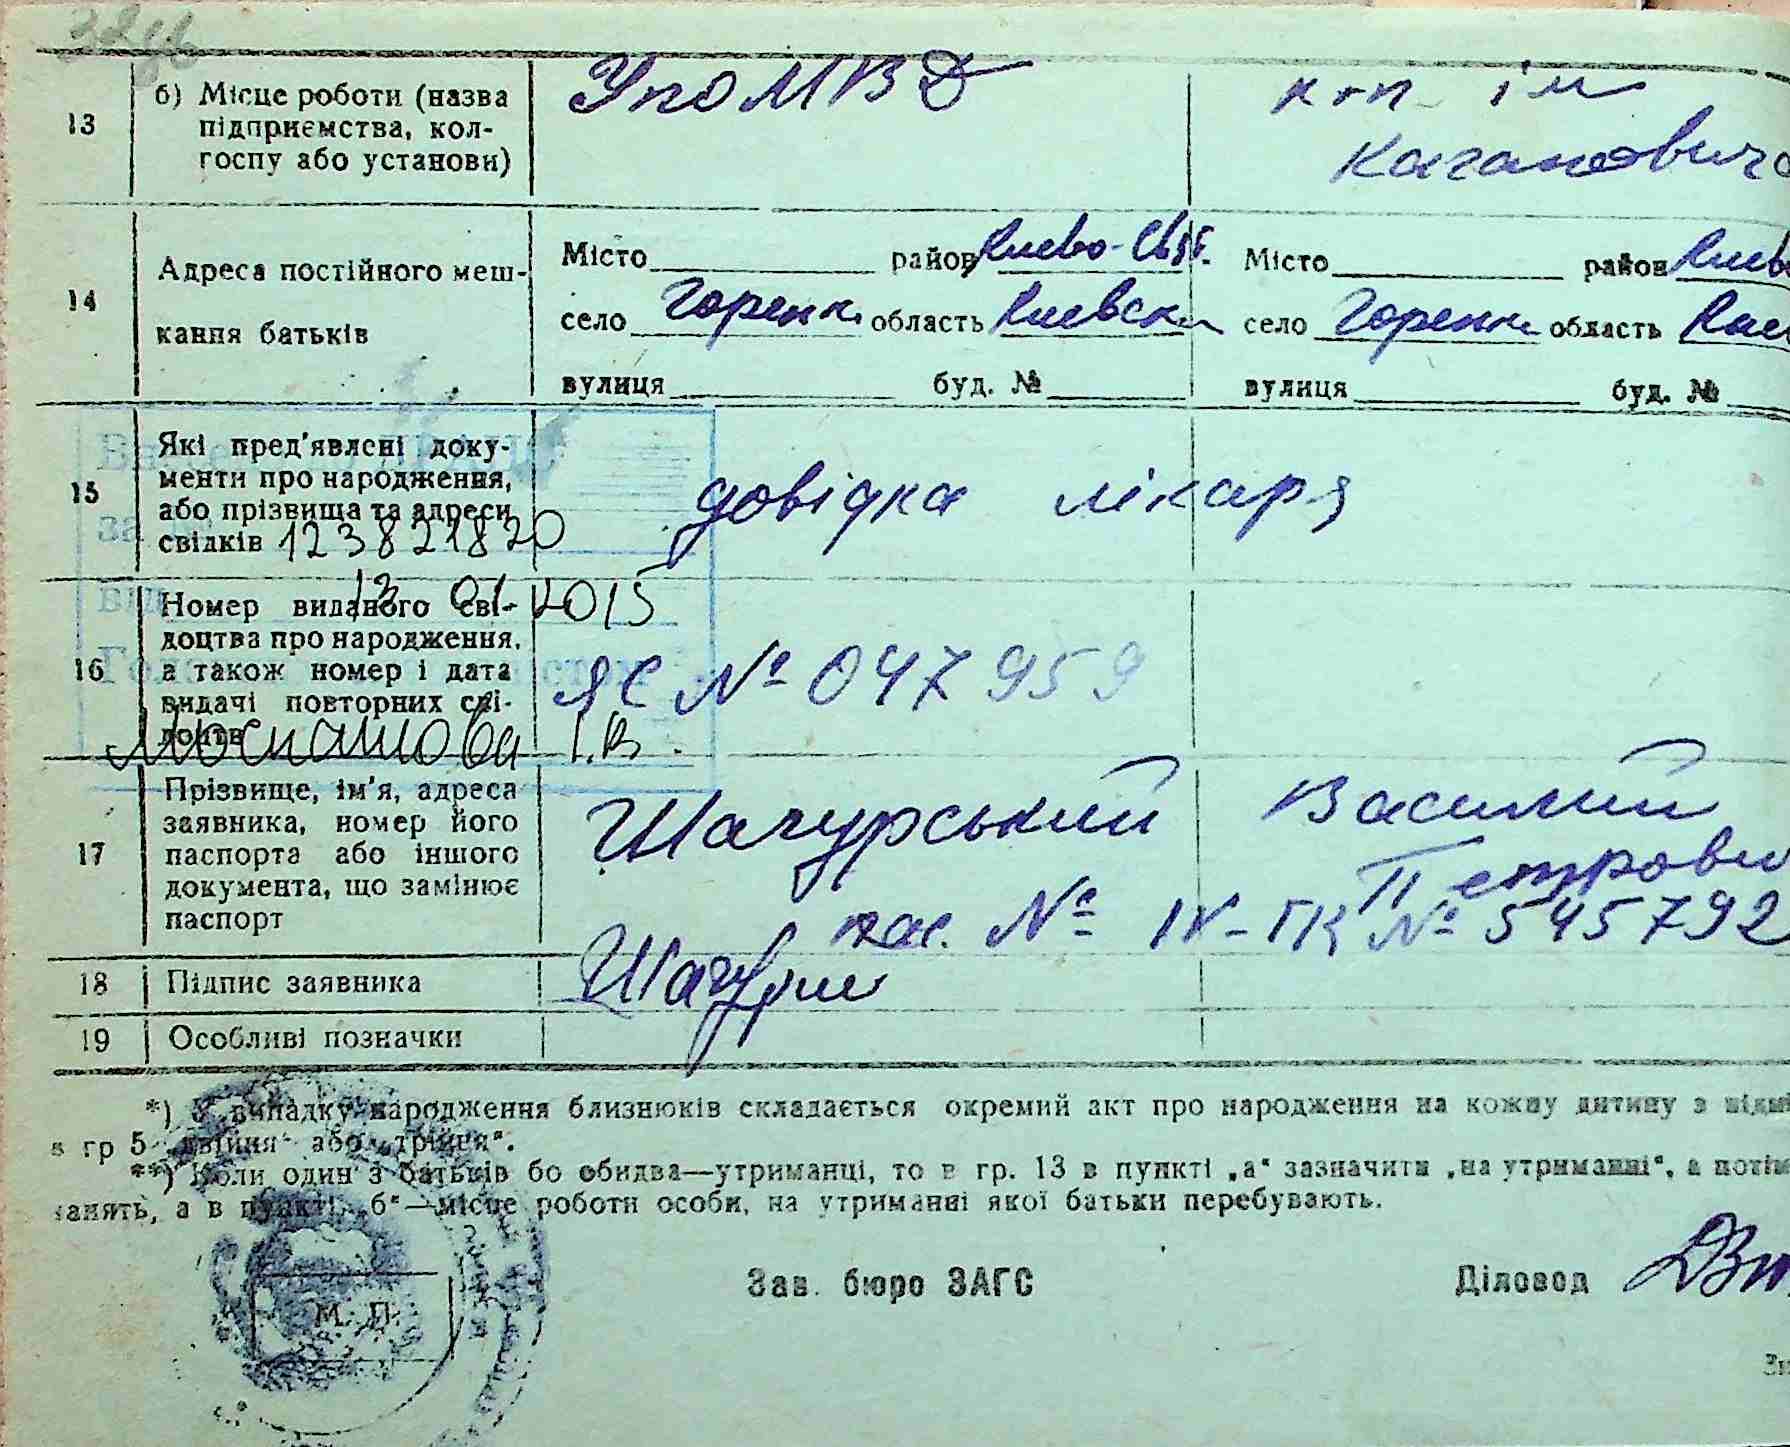 13
б) Місце роботи (назва
підприємства, кол-
госпу або установи)
УпоМВД
кол. ім
Кагановича
14
Адреса постійного меш-
кання батьків
Місто район Киево-Свят.
село Горенк область Киевск
вулиця буд. №
Місто район Киево
село Горенк область Кие
вулиця буд. №
15
Які пред'явлені доку-
менти про народження,
або прізвища та адреси
свідків
довідка лікаря
за
123821820
від 13 01 2015
16
Номер виданого сві-
доцтва про народження,
а також номер і дата
видачі повторних сві-
доцтв
ЯС № 047959
І.В.
17
Прізвище, ім'я, адреса
заявника, номер його
паспорта або іншого
документа, що замінює
паспорт
Шачурський Василий
Петрови
пас. № IV-ГК № 545792
18
Підпис заявника
19
Особливі позначки
*) У випадку народження близнюків складається окремий акт про народження на кожну дитину з відмі
в гр 5 „двійня“ або „трійня“.
**) Коли один з батьків бо обидва—утриманці, то в гр. 13 в пункті „а“ зазначити „на утриманні“, а потім
занять, а в пункті „б“—місце роботи особи, на утриманні якої батьки перебувають.
Зав. бюро ЗАГС
Діловод
М. П.